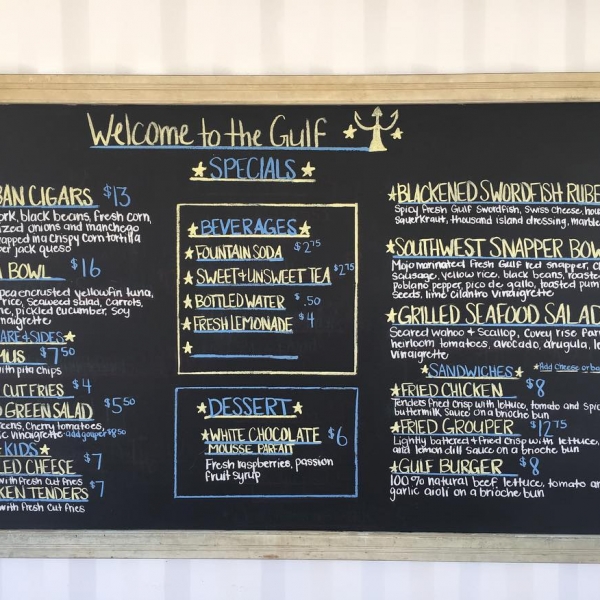 Welcome to the Gulf
SPECIALS
BAN CIGARS $13
ork, black beans, fresh corn,
ized onions and manchego
rapped in a crispy corn tortilla
per jack queso
BOWL $16
pea encrusted yellowfin tuna,
rice, seaweed salad, carrots,
ne, pickled cucumber, soy
naigrette
ARE & SIDES
MUS $7.50
with pita chips
CUT FRIES $4
D GREEN SALAD $5.50
eens, cherry tomatoes,
ic vinaigrette - add grouper $8.50
KIDS
LED CHEESE $7
with fresh cut fries
KEN TENDERS $7
with fresh cut fries
BEVERAGES
FOUNTAIN SODA $2.75
SWEET & UNSWEET TEA $2.75
BOTTLED WATER $.50
FRESH LEMONADE $4
DESSERT
WHITE CHOCOLATE $6
MOUSSE PARFAIT
Fresh raspberries, passion
fruit syrup
BLACKENED SWORDFISH RUBE
Spicy fresh Gulf swordfish, Swiss cheese, hou
sauerkraut, thousand island dressing, marble
SOUTHWEST SNAPPER BOW
Mojo marinated fresh Gulf red snapper, c
sausage, yellow rice, black beans, roaste
poblano pepper, pico de gallo, toasted pum
seeds, lime cilantro vinaigrette
GRILLED SEAFOOD SALAD
Seared Wahoo & Scallop, Covey rise Far
heirloom tomatoes, avocado, arugula, le
vinaigrette
SANDWICHES Add Cheese or ba
FRIED CHICKEN $8
Tenders fried crisp with lettuce, tomato and spic
buttermilk sauce on a brioche bun
FRIED GROUPER $12.75
Lightly battered + fried crisp with lettuce,
and lemon dill sauce on a brioche bun
GULF BURGER $8
100% natural beef, lettuce, tomato an
garlic aioli on a brioche bun